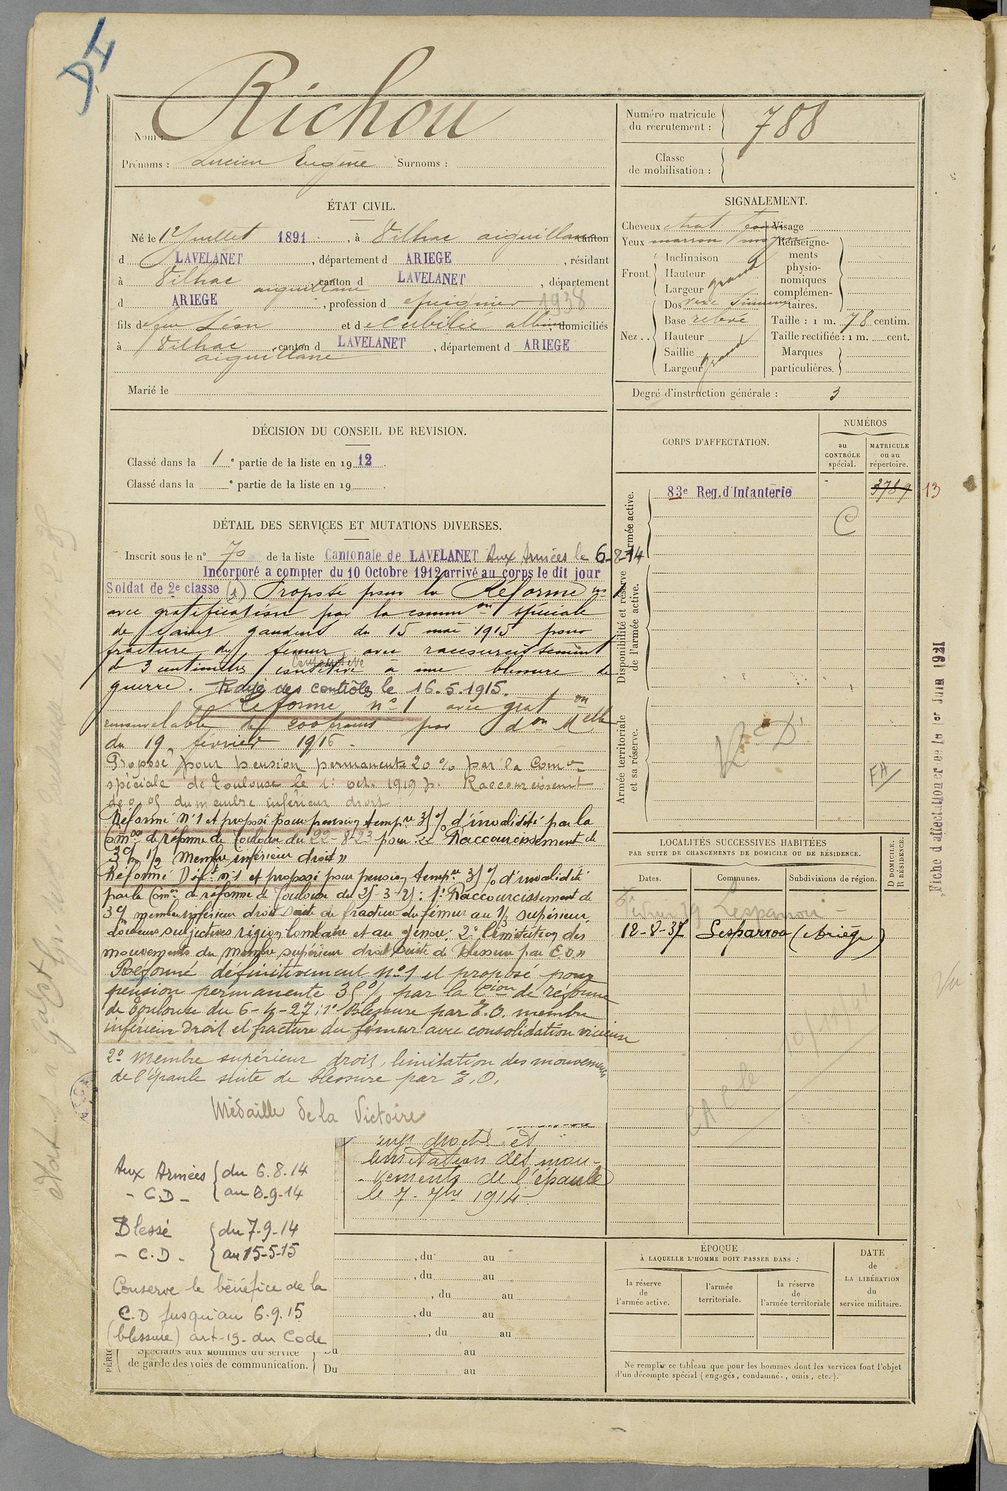 Richou
Nom :
Prénoms : Lucien Eugène Surnoms :
Numéro matricule
du recrutement :
788
Classe
de mobilisation :
ÉTAT CIVIL.
Né le 1er Juillet 1891, à Dilhac aiguillane canton
d LAVELANET, département d ARIEGE, résidant
à Dilhac aiguillane canton d LAVELANET, département
d ARIEGE, profession d 1938
fils de feu Léon et de domiciliés
à Dilhac aiguillane, canton d LAVELANET, département d ARIEGE
Marié le
SIGNALEMENT.
Cheveux chat
Yeux marron
Inclinaison
Front Hauteur
Largeur grand
Dos
Base relevé
Nez .. Hauteur
Saillie
Largeur grand
Visage
Renseigne-
ments
physio-
nomiques
complémen-
taires.
Taille : 1 m. 78 centim.
Taille rectifiée : 1 m. cent.
Marques
particulières.
Degré d'instruction générale : 3
DÉCISION DU CONSEIL DE REVISION.
Classé dans la 1e partie de la liste en 1912.
Classé dans la e partie de la liste en 19
CORPS D'AFFECTATION.
NUMÉROS
au
CONTRÔLE
spécial.
MATRICULE
ou au
répertoire.
Armée active.
83e Reg. d'Infanterie
3789
13
C
Disponibilité et réserve
de l'armée active.
Armée territoriale
et sa réserve.
FA
Fiche d'affectation créée le 1er Juin 1921
DÉTAIL DES SERVICES ET MUTATIONS DIVERSES.
Inscrit sous le n° 70 de la liste Cantonale de LAVELANET Aux Armées le 6-8-14
Incorporé a compter du 10 Octobre 1912 arrivé au corps le dit jour
Soldat de 2e classe (1) Proposé pour la Réforme n°1
avec gratification par la common spéciale
de Saint Gaudens du 15 mai 1915 pour
fracture du fémur avec raccourcissement
de 3 centimètres consécutive à une blessure de
guerre. Rayé des contrôles le 16.5.1915.
Réforme n° 1 avec grat on
renouvelable de 200 francs par don Melle
du 19 février 1916.
Proposé pour pension permanente 20 % par la Comon
spéciale de Toulouse le 1: oct. 1919 p. Raccourcissement
du membre inférieur droit
Réformé N°1 et proposé pour pension tempre 35% d'invalidité par la
Comon de réforme de Toulouse du 22-8-23 pour Raccourcissement de
3% 1/2 Membre inférieur droit »
Réformé Déf. n°1 et proposé pour pension tempre 35% d'invalidité
par la Comon de réforme de Toulouse du 25-3-25: 1° Raccourcissement de
3% membre inférieur droit suite de fracture du fémur au 1/3 supérieur
douleurs subjectives région lombaire et au genou. 2° limitation des
mouvements du Membre supérieur droit suite de blessure par E.O »
Réformé définitivement n°1 et proposé pour
pension permanente 35% par la Cion de réforme
de Toulouse du 6-4-27, 1° Blessure par E.O. membre
inférieur droit et fracture du fémur avec consolidation vicieuse
2° Membre supérieur droit, limitation des mouvements
de l'épaule suite de blessure par E.O.
Médaille de la Victoire
droit et
limitation des mou-
vements de l'épaule
le 7. 7bre 1914
Aux Armées du 6.8.14
- CD - au 6-9-14
Blessé du 7-9-14
- C.D. au 15-5-15
Conserve le bénéfice de la
C.D jusqu'au 6.9.15
(blessure) art-19. du Code
Spéciales aux hommes du service
de garde des voies de communication.
, du au
, du au
, du au
, du au
, du au
Du au
Du au
LOCALITÉS SUCCESSIVES HABITÉES
PAR SUITE DE CHANGEMENTS DE DOMICILE OU DE RÉSIDENCE.
Dates.
Communes.
Subdivisions de région.
D DOMICILE.
R RÉSIDENCE.
Lesparrou
12-2-37 Lesparrou (Ariège)
Vu
ÉPOQUE
À LAQUELLE L'HOMME DOIT PASSER DANS :
la réserve
de
l'armée active.
l'armée
territoriale.
la réserve
de
l'armée territoriale
DATE
de
LA LIBÉRATION
du
service militaire.
Ne remplir ce tableau que pour les hommes dont les services font l'objet
d'un décompte spécial (engagés, condamnés, omis, etc.).